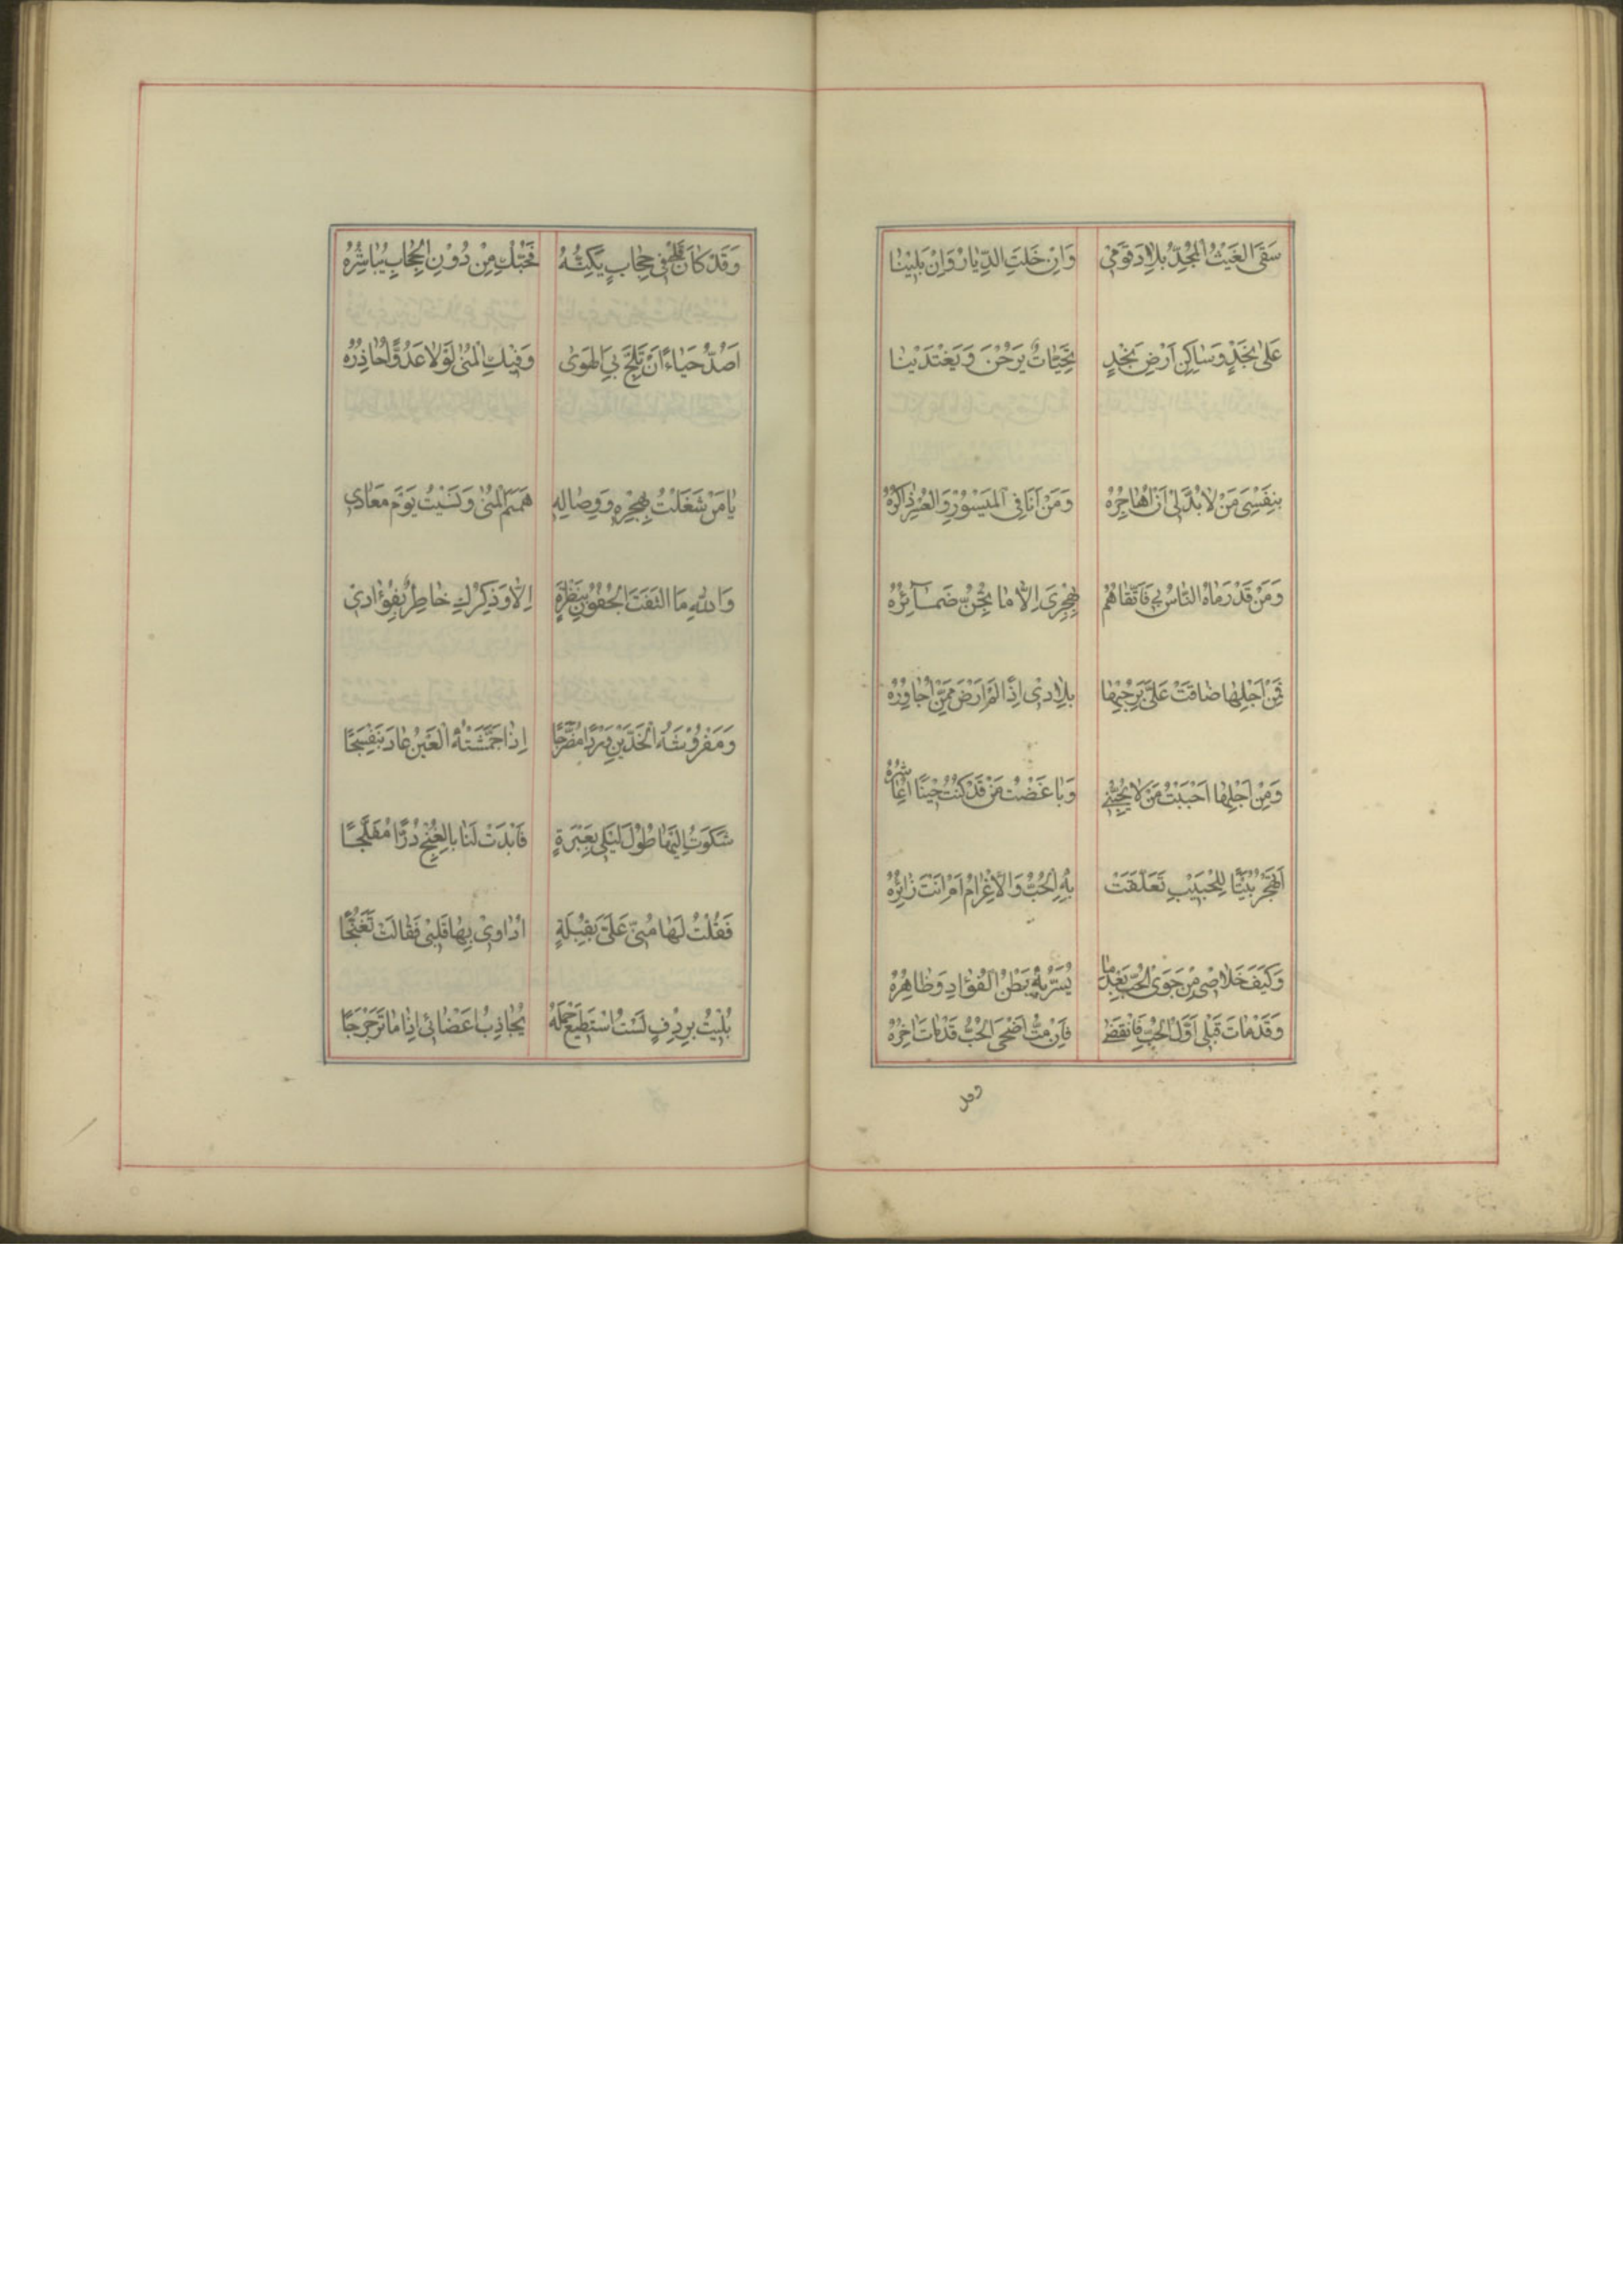 سَقَى الغَيْثُ المُجِدُّ بِلَادَ قَوْمِي وَاِنْ خَلَتِ الدِّيَارُ وَاِنْ بَلِيْنَا
عَلَى نَجْدٍ وَسَاكِنِ اَرْضِ نَجْدٍ تَحِيَّاتٌ يَرُحْنَ وَيَغْتَدِيْنَا
بِنَفْسِيَ مَنْ لَا بُدَّ لِيْ اَنْ اُهَاجِرُهْ وَمَنْ اَنَا فِي المَيْسُوْرِ وَالعُسْرِ ذَاكِرُهْ
وَمَنْ قَدْ رَمَاهُ النَّاسُ بِي فَاتَّقَاهُمْ بِهَجْرِيَ اِلَّا مَا تُجِنُّ ضَمَآئِرُهْ
فَمِنْ اَجْلِهَا ضَاقَتْ عَلَيَّ بِرُحْبِهَا بِلَادِيْ اِذَا لَمْ اَرْضَ مِمَّنْ اُجَاوِرُهْ
وَمِنْ اَجْلِهَا اَحْبَبْتُ مَنْ لَا يُحِبُّنِي وَبَاغَضْتُ مَنْ قَدْ كُنْتُ حِيْنًا اُعَاشِرُهْ
اَتَهْجُرُ بَيْتًا لِلْحَبِيْبِ تَعَلَّقَتْ بِهِ الحُبُّ وَالْاِغْرَامُ اَمْ اَنْتَ زَائِرُهْ
وَكَيْفَ خَلَاصِي مِنْ جَوَى الحُبِّ بَعْدَمَا يُسَرُّ بِهِ بَطْنُ الفُؤَادِ وَظَاهِرُهْ
وَقَدْ مَاتَ قَبْلِي اَوَّلُ الحُبِّ فَانْقَضَى فَاِنْ مِتُّ اَضْحَى الحُبُّ قَدْ مَاتَ اخِرُهْ
وقد
وَقَدْ كَانَ قَلْبِي فِي حِجَابٍ يُكِنُّهُ فَحُبُّكِ مِنْ دُوْنِ الحِجَابِ يُبَاشِرُهْ
اَصُدُّ حَيَاءً اَنْ يَلِجَّ بِيَ الهَوَى وَفِيْكِ المُنَى لَوْلَا عَدُوٌّ اُحَاذِرُهْ
يَا مَنْ شَغَلْتُ بِهَجْرِهِ وَوِصَالِهِ هِمَمَ المُنَى وَنَسِيْتُ يَوْمَ مَعَادِي
وَاللهِ مَا التَفَتَ الجُفُوْنُ بِنَظْرَةٍ اِلَّا وَذِكْرُكِ خَاطِرٌ بِفُؤَادِيْ
وَمَفْرُوْشَةُ الخَدَّيْنِ وَرْدًا مُضَرَّجًا اِذَا جَمَّشَتْهُ العَيْنُ عَادَ بَنَفْسَجًا
شَكَوْتُ اِلَيْهَا طُوْلَ لَيْلِي بِعَبْرَةٍ فَاَبْدَتْ لَنَا بِالغُنْجِ دُرًّا مُفَلَّجًا
فَقُلْتُ لَهَا مُنِّي عَلَيَّ بِقُبْلَةٍ اُدَاوِيْ بِهَا قَلْبِيْ فَقَالَتْ تَغَنُّجًا
بُلِيْتُ بِرِدْفٍ لَسْتُ اَسْتَطِيْعُ حَمْلَهُ يُجَاذِبُ اَعْضَائِيْ اِذَا مَا تَرَجْرَجًا